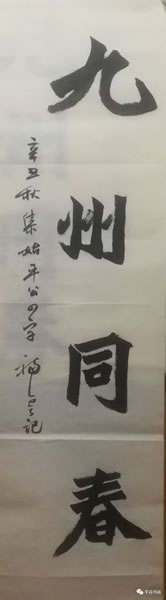 九州同春
辛丑秋集始平公四字
记